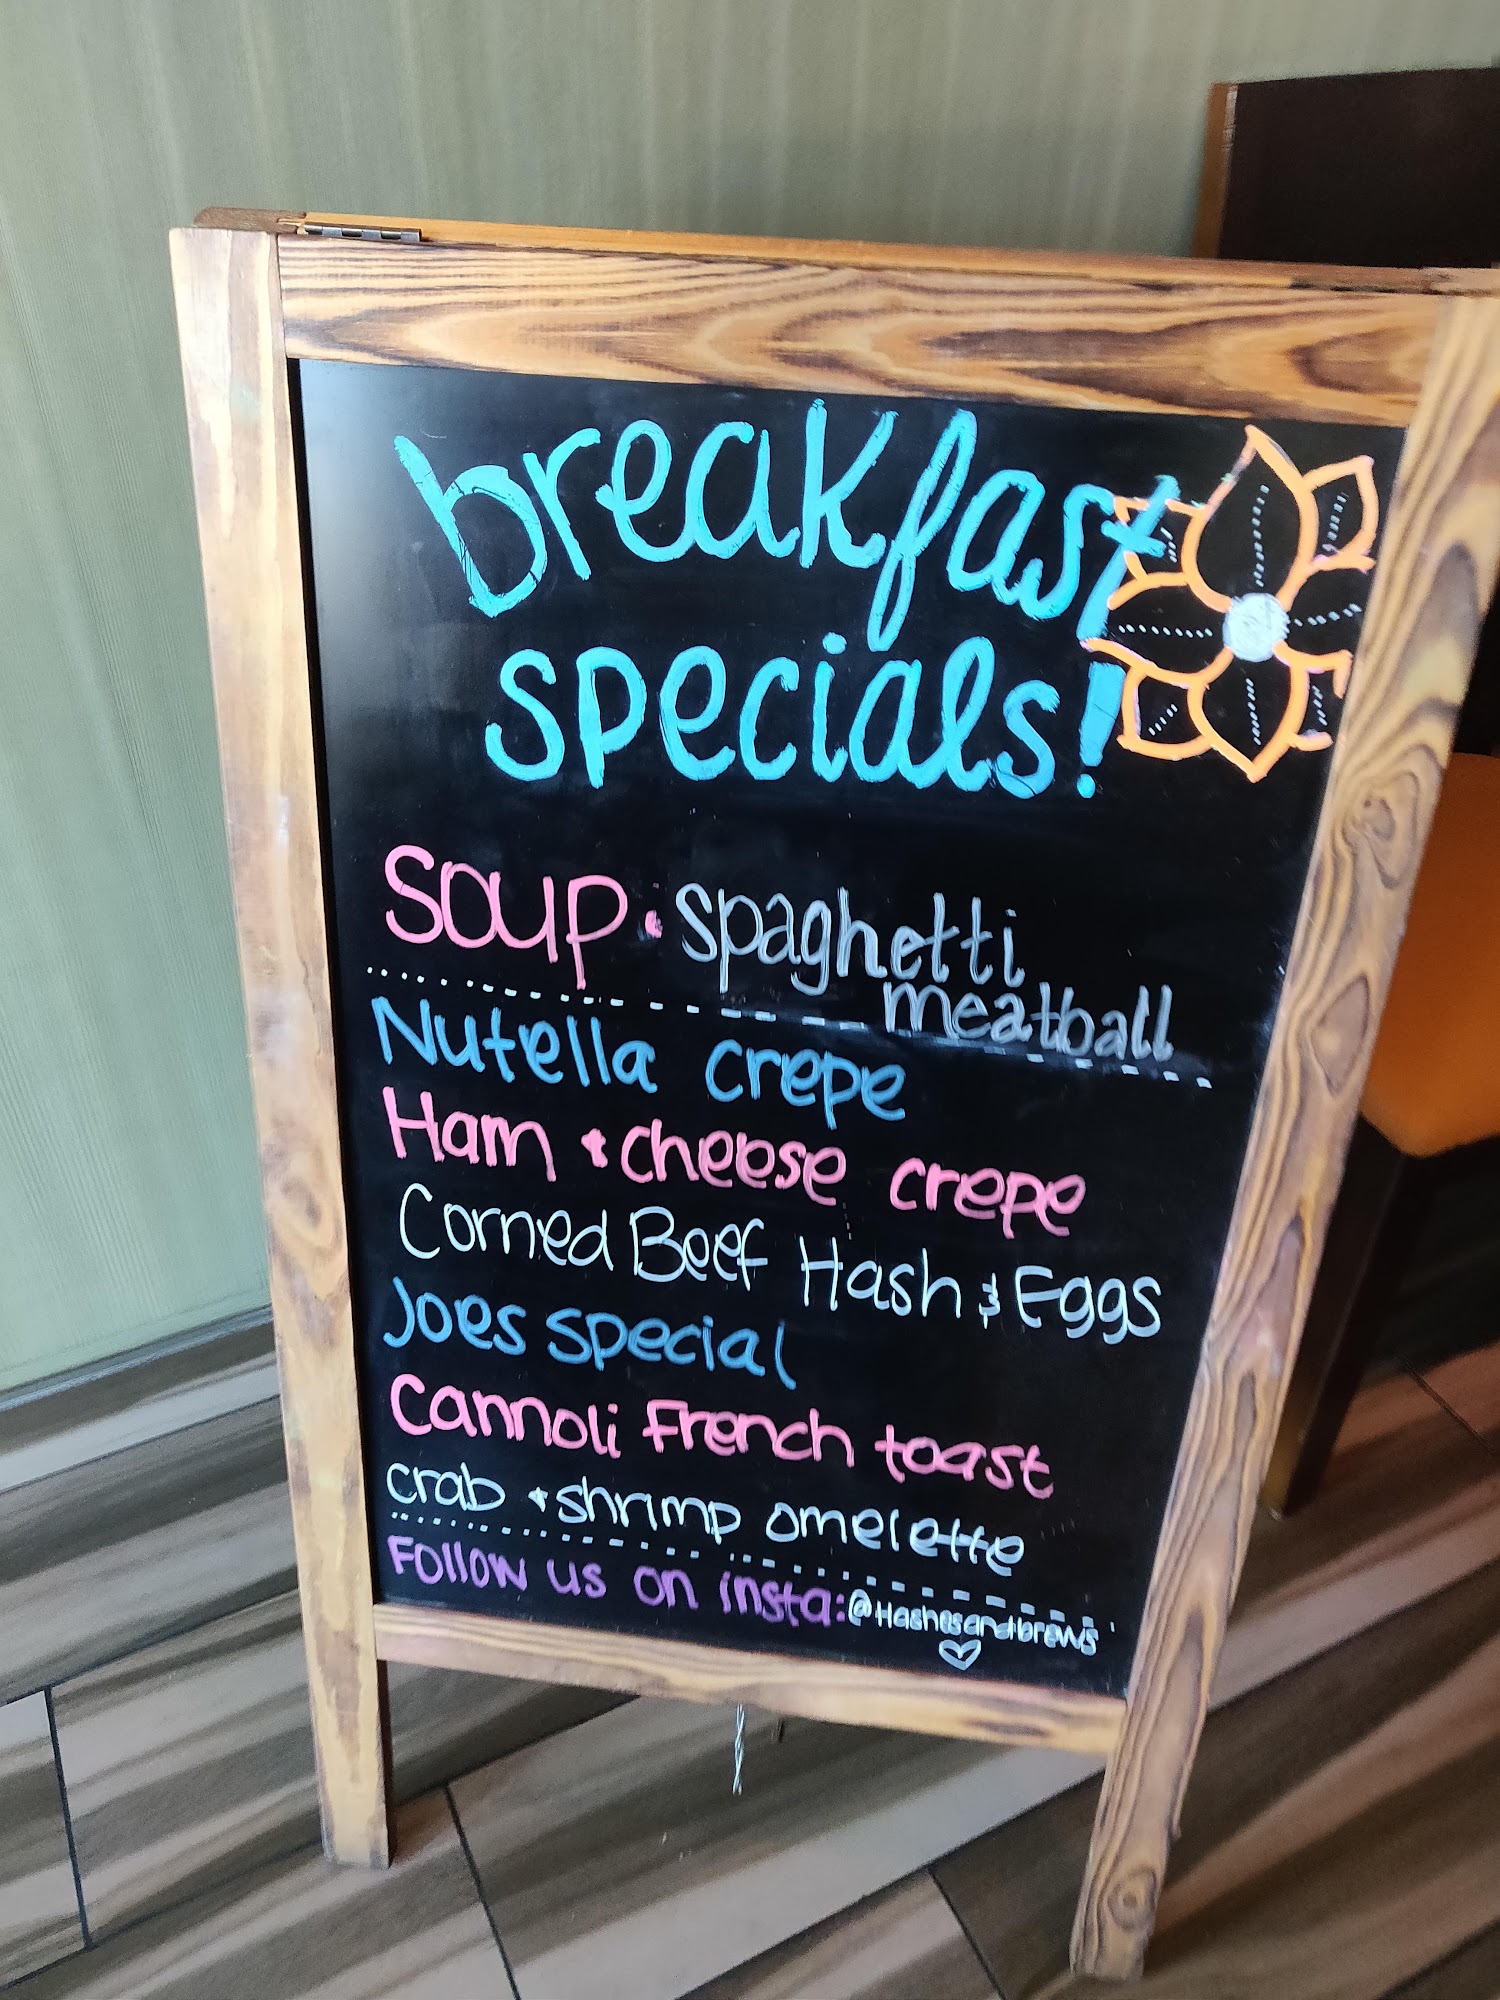 breakfast
specials!
SOUP · spaghetti
meatball
Nutella crepe
Ham + cheese crepe
Corned Beef Hash & Eggs
Joes special
Cannoli French toast
crab + shrimp omelette
Follow us on insta: @Hashesandbrews